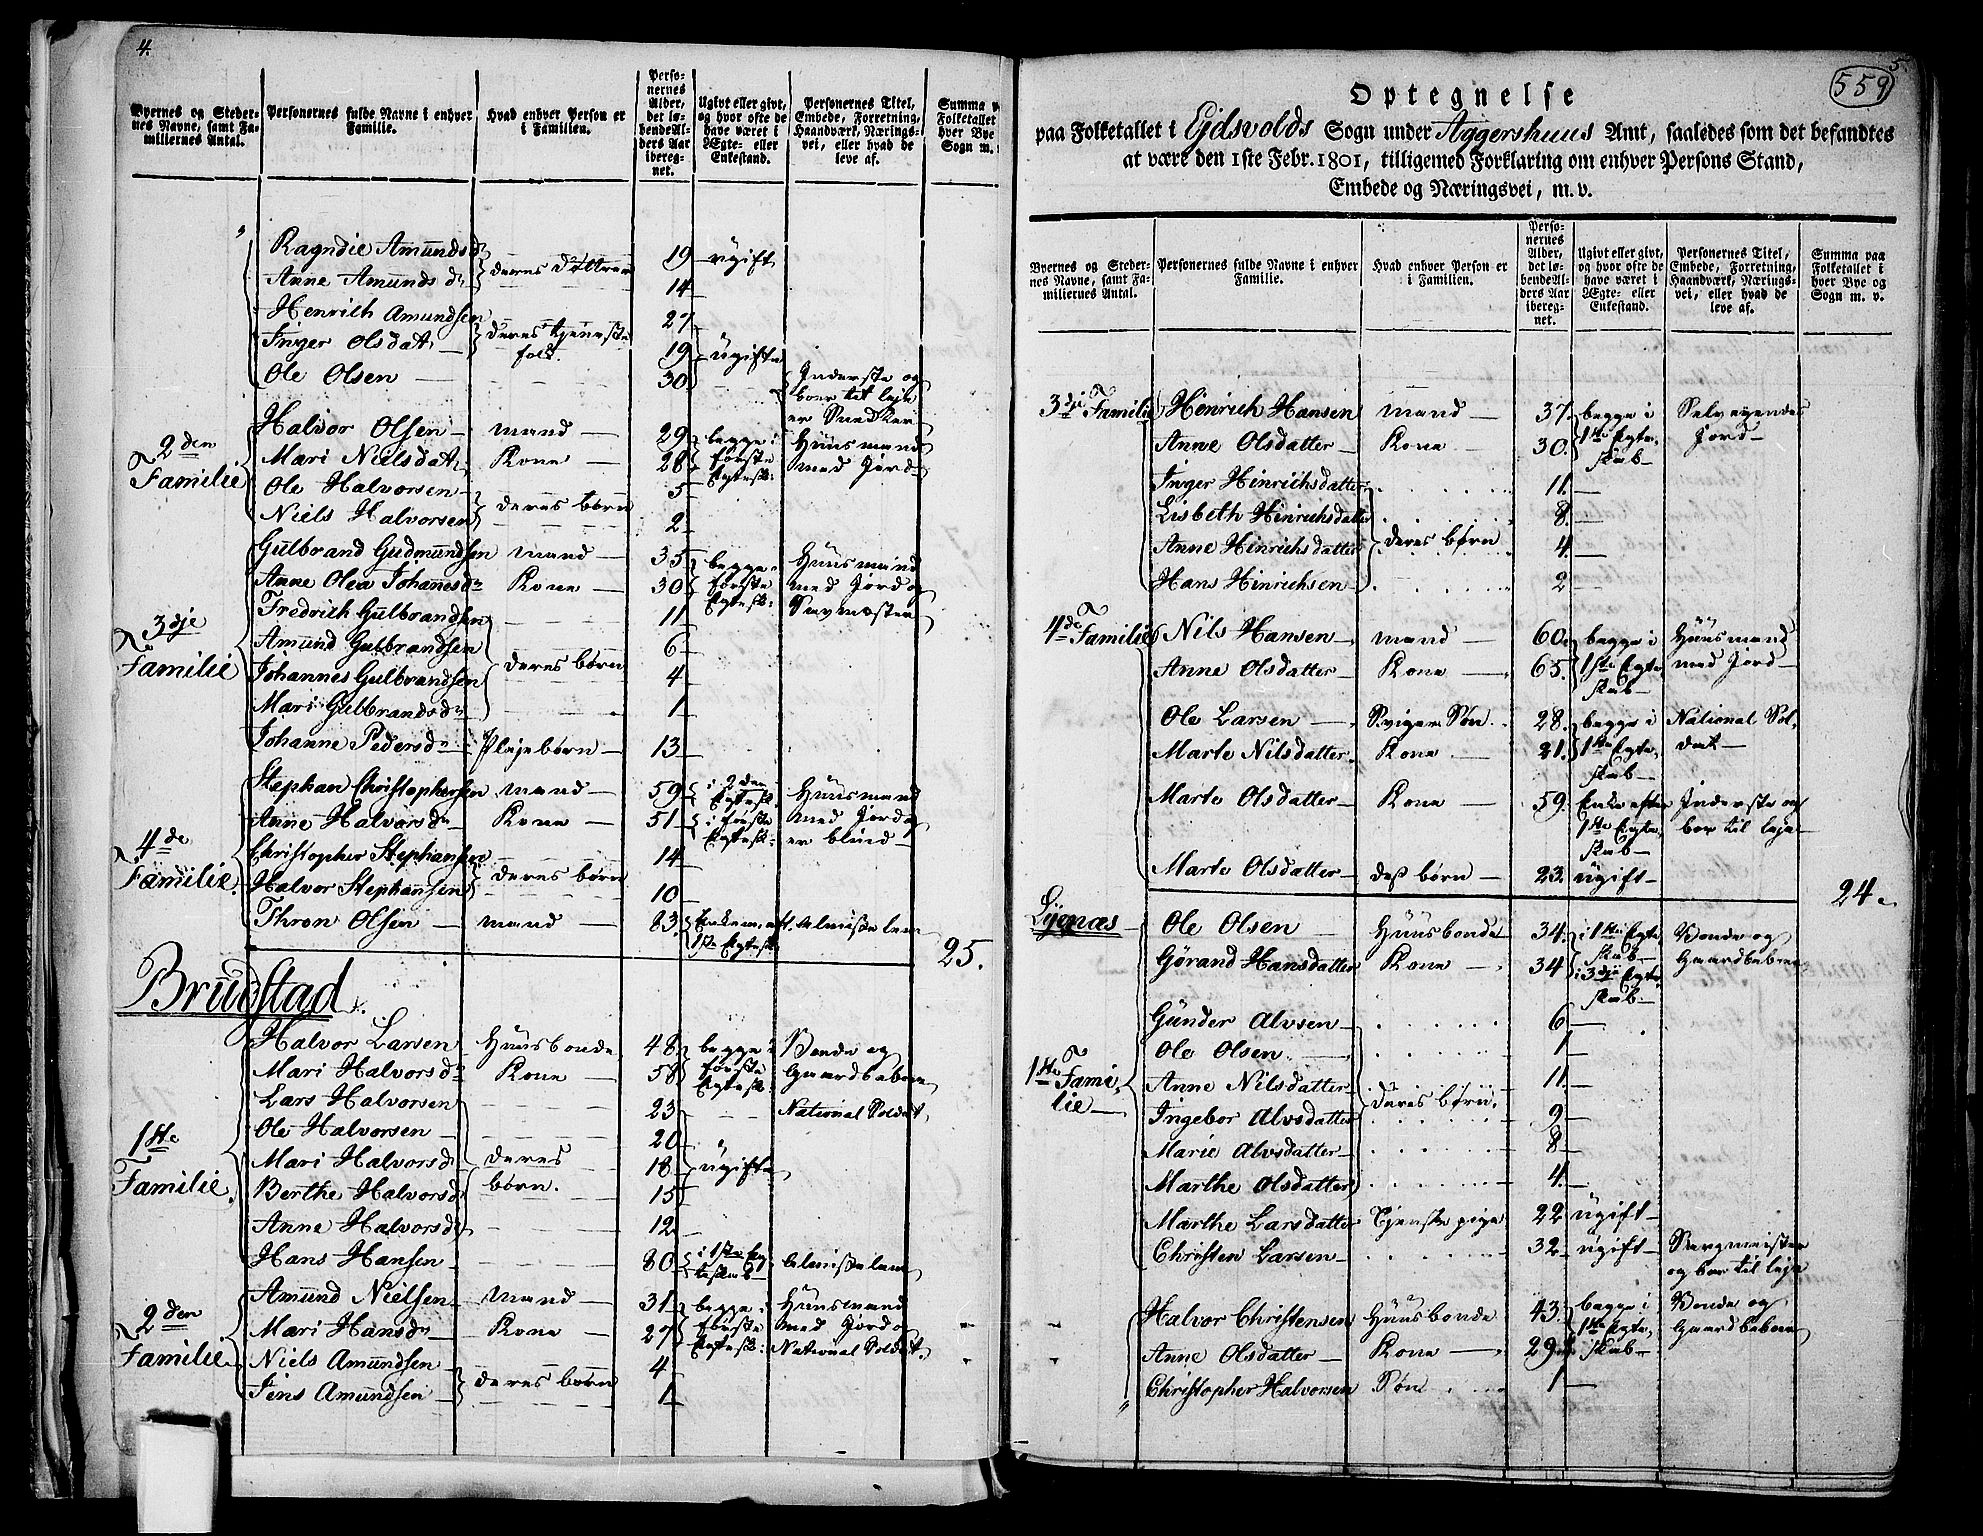 4.
Byernes og Steder-
nes Navne, samt Fa-
miliernes Antal.
Personernes fulde Navne i enhver
Familie.
Hvad enhver Person er
i Familien.
Perso-
nernes
Alder,
det lø-
bende Al-
ders Aar
ibereg-
net.
Ugivt eller givt,
og hvor ofte de
have været i
Ægte- eller
Enkestand.
Personernes Titel,
Embede, Forretning,
Haandværk, Nærings-
vei, eller hvad de
leve af.
Summa p
Folketallet
hver Bye
Sogn m.
Ragndie Amundsd. deres døttrer 19 ugift
Anne Amundsdr 14
Henrich Amundsen deres tjeneste 27
Inger Olsdatr folk. 19 ugifte
Ole Olsen 30 Inderste og
boer til leje
er Snedker
2den Familie Halvor Olsen mand 29 begge i Huusmand
Mari Nielsdatr Kone 28 første med Jord
Ole Halvorsen deres børn 5 Egtesk:
Niels Halvorsen 2
3dje Familie Gulbrand Gudmundsen mand 35 begge Huusmand
Anne Olea Johanesdr Kone 30 første med Jord og
Fredrich Gulbrandsen 11 Egtesk: Savmester
Amund Gulbrandsen 6
Johannes Gulbrandsen deres børn 4
Mari Gulbrandsdr 1
Johanne Pedersdr Plejebørn 13
4de Familie. Stephan Christophersen mand 59 i 2den Egtesk. Huusmand
Anne Halvorsdr Kone 51 i første Egtesk: med Jord og er blind
Christopher Stephansen deres børn 14
Halvor Stephansen 10
Thron Olsen mand 83. Enkem. aft. 1ste Egtesk. almisselem
25.
Brudstad
1ste Familie. Halvor Larsen Huusbonde 48 begge i Bonde og
Mari Halvorsdr Kone 58 første Egtesk. Gaardbeboer
Lars Halvorsen 23 National Soldat
Ole Halvorsen 20
Mari Halvorsd deres 18 ugifte
Berthe Halvorsd børn. 15
Anne Halvorsd 12
Hans Hansen 80 i 1ste Eg-
teskab almisselem
2den Familie Amund Nielsen mand 31 begge i Huusmand
Mari Hansdr Kone 27 første med Jord og
Egtesk: National Soldat.
Niels Amundsen deres børn 4
Jens Amundsen 1
5
559
Optegnelse
paa Folketallet i Ejdsvolds Sogn under Aggershuus Amt, saaledes som det befandtes
at være den 1ste Febr. 1801, tilligemed Forklaring om enhver Persons Stand,
Embede og Næringsvei, m. v.
Byernes og Steder-
nes Navne, samt Fa-
miliernes Antal.
Personernes fulde Navne i enhver
Familie.
Hvad enhver Person er
i Familien.
Perso-
nernes
Alder,
det lø-
bende Al-
ders Aar
ibereg-
net.
Ugivt eller givt,
og hvor ofte de
have været i
Ægte- eller
Enkestand.
Personernes Titel,
Embede, Forretning,
Haandværk, Nærings-
vei, eller hvad de
leve af.
Summa paa
Folketallet i
hver Bye og
Sogn m. v.
3dje Familie Henrich Hansen mand 37. begge i Selvegendes
Anne Olsdatter Kone 30. 1ste Egte- Jord
skab
Inger Hinrichsdatter 11.
Lisbeth Hinrichsdatter 8.
Anne Hinrichsdatter deres børn 4
Hans Hinrichsen 2
4de Familie Nils Hansen mand 60. begge i Huusmand
Anne Olsdatter Kone 65. 1ste Egte med Jord
skab
Ole Larsen Sviger Søn 28. begge i National Sol-
Marte Nilsdatter Kone 21. 1ste Egte- dat
skab
Marte Olsdatter Kone 59. Enke efter Inderste og
1ste Egte- boer til leje
skab
Marte Olsdatter dess børn 23. ugift
24
Lysnæs
1ste Fami-
lie
Ole Olsen Huusbonde 34. i 1ste Egte- Bonde og
skab
Gørand Hansdatter Kone 34 i 3dje Egte- Gaardbeboer
skab
Gunder Alvsen 6
Ole Olsen 1
Anne Nilsdatter deres børn. 11
Ingebor Alvsdatter 9
Marie Alvsdatter 8
Marthe Olsdatter 4.
Marthe Larsdatter Tjenste pige 22 ugift
Christen Larsen 32 ugift Savgmester
og boer til leje
Halvor Christensen Huusbonde 43. begge i Bonde og
Anne Olsdatter Kone 29 1ste Egte- Gaardbeboer
skab
Christopher Halvorsen Søn 1